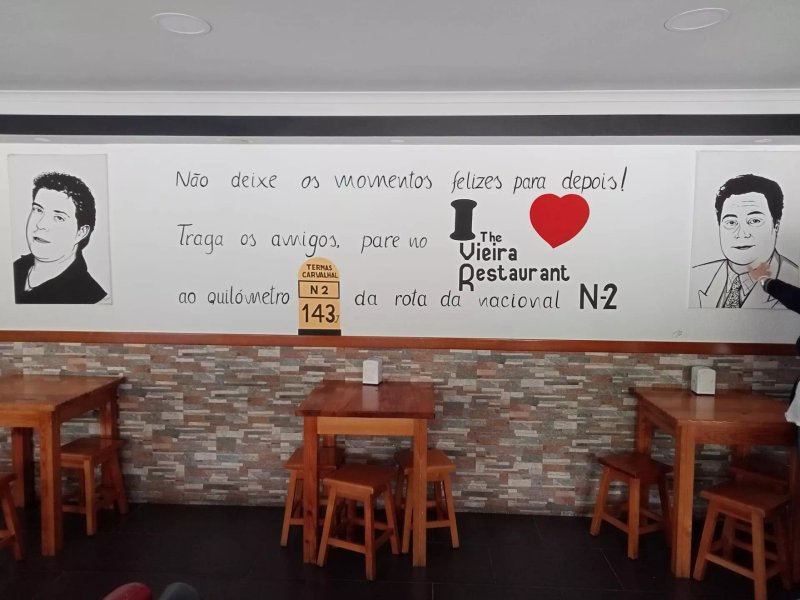 Não deixe os momentos felizes para depois!
Traga os amigos, pare no I The Vieira Restaurant
ao quilómetro TERMAS CARVALHAL N2 143,7 da rota da nacional N-2